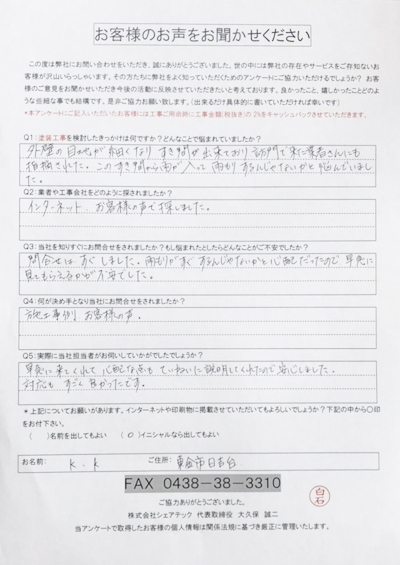 お客様のお声をお聞かせください
この度は弊社にお問い合わせをいただき、誠にありがとうございました。世の中には弊社の存在やサービスをご存知ないお
客様が沢山いらっしゃいます。その方たちに弊社をよく知っていただくためのアンケートにご協力いただけるでしょうか? お客
様のご意見をお聞かせいただき今後の活動に反映させていただきたいと考えております。良かったこと、嬉しかったことどのよ
うな些細な事でも結構です。是非ご協力お願い致します。(出来るだけ具体的に書いていただければ幸いです)
*本アンケートにご記入いただいたお客様には工事ご用命終に工事金額(税抜き)の2%をキャッシュバックさせていただきます。
Q1:塗装工事を検討したきっかけは何ですか?どんなことで悩まれていましたか?
外壁の目地が細くなり すき間が出来ており 訪問で来た業者さんにも
指摘された。このすき間から雨が入って雨もりするんじゃないかと悩んでいまし
た。
Q2:業者や工事会社をどのように探されましたか?
インターネット、お客様の声で探しました。
Q3:当社を知りすぐにお問合せをされましたか?もし悩まれたとしたらどんなことがご不安でしたか?
問合せはすぐしました。雨もりがすぐするんじゃないかと心配だったので早急に
見てもらえるかが不安でした。
Q4:何が決め手となり当社にお問合せをされましたか?
施工事例、お客様の声。
Q5:実際に当社担当者がお伺いしていかがでしたでしょうか?
早急に来てくれて 心配な点も ていねいに説明してくれたので安心しました。
対応も すごく 良かったです。
*上記についてお願いがあります。インターネットや印刷物に掲載させていただいてもよろしいでしょうか?下記の中から〇印
をお付下さい。
( )名前を出してもよい (〇)イニシャルなら出してもよい
お名前: K.K ご住所: 東金市日吉台
FAX 0438-38-3310
ご協力ありがとうございました。
白石
株式会社シェアテック 代表取締役 大久保 誠二
当アンケートで取得したお客様の個人情報は関係法規に基づき厳正に管理いたします。